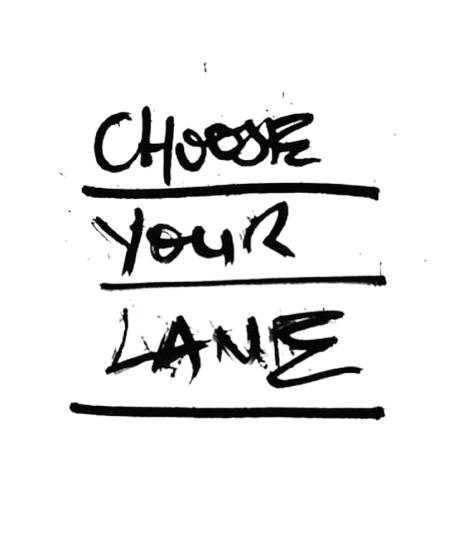 CHOOSE
YOUR
LANE